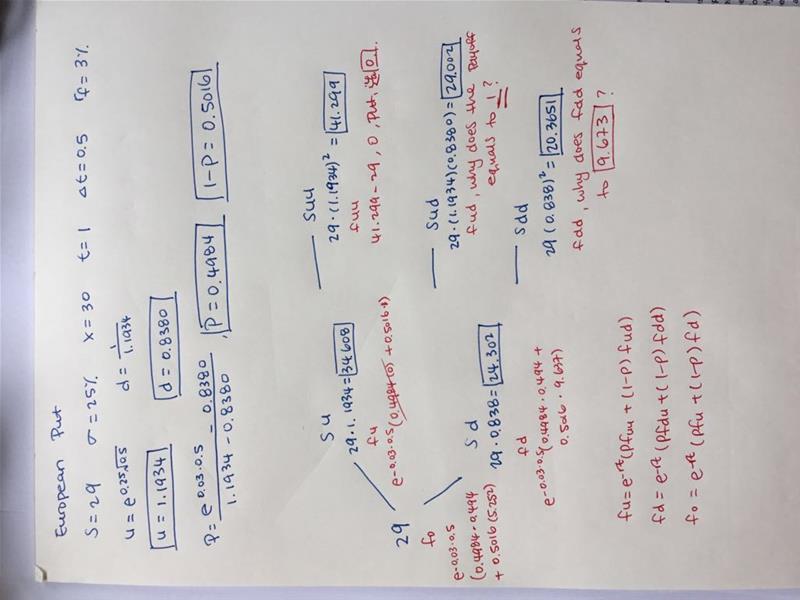 European Put
S=29 σ=25% x=30 t=1 Δt=0.5 rf=3%
u=e^0.25√0.5 d=1/1.1934
u=1.1934 d=0.8380
P=(e^0.03·0.5 - 0.8380)/(1.1934-0.8380), P=0.4984 1-P=0.5016
Suu
29·(1.1934)²=41.299
fuu
41.299-29, 0, Put, 0.
Su
29·1.1934=34.608
fu
e^-0.03·0.5(0.4984(0)+0.5016·
29
fo
e^-0.03·0.5
(0.4984·0.494
+ 0.5016(5.252)
Sud
29·(1.1934)(0.8380)=29.002
fud, why does the payoff
equals to 1?
Sd
29·0.838=24.302
fd
e^-0.03·0.5(0.4984·0.494+
0.5016·9.637)
Sdd
29(0.838)²=20.3651
fdd, why does fdd equals
to 9.673?
fu=e^-rt(Pfuu+(1-P)fud)
fd=e^-rt(Pfdu+(1-P)fdd)
fo=e^-rt(Pfu+(1-P)fd)